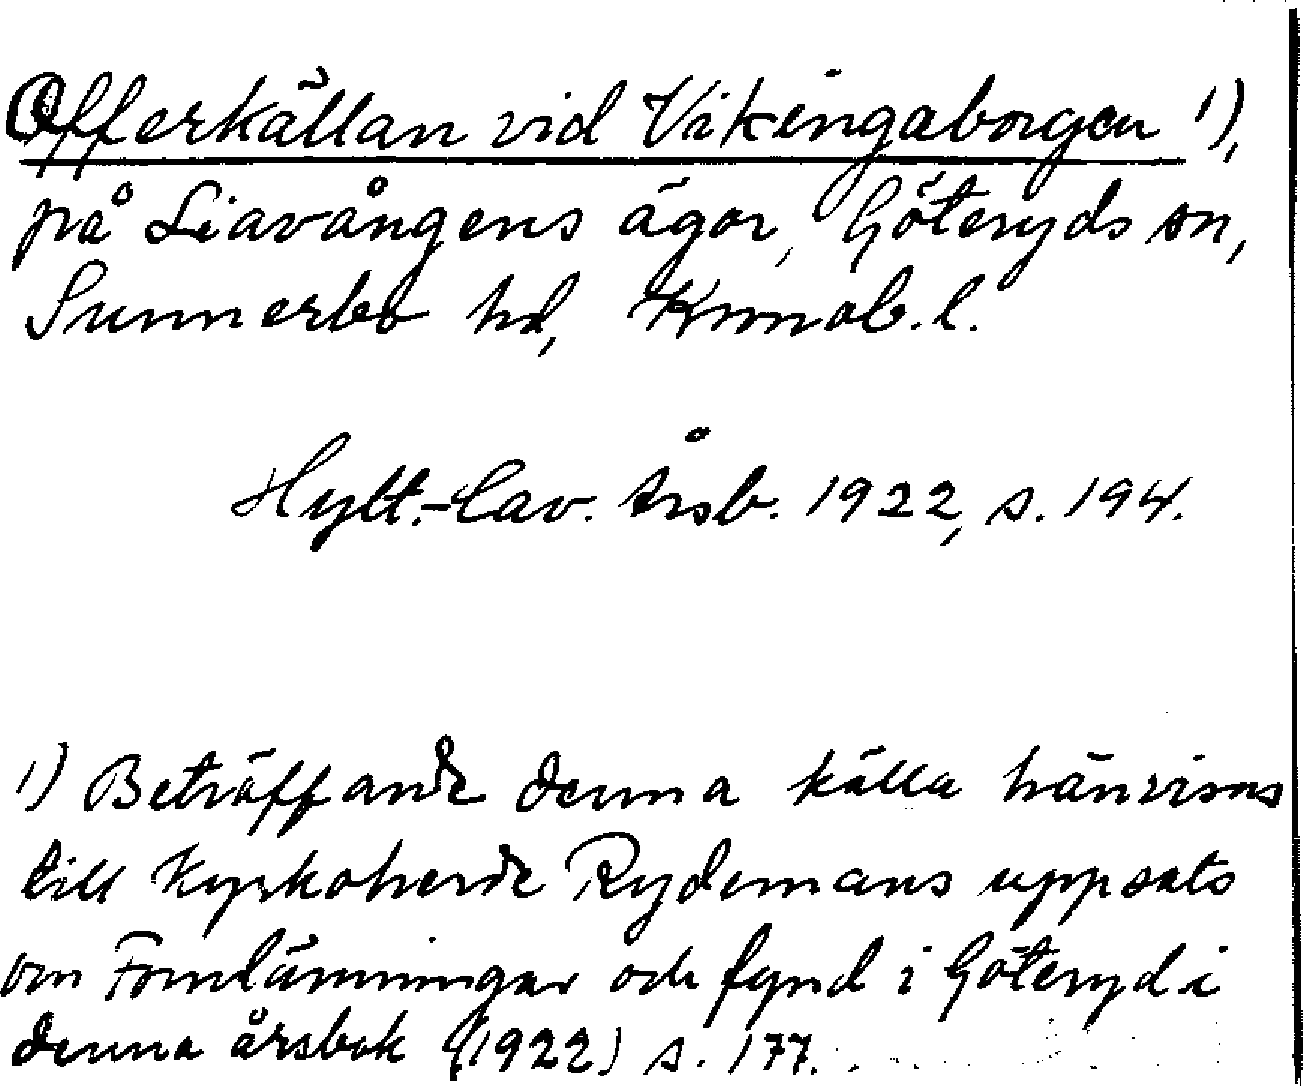 Offerkällan vid Vikingaborgen ¹),
på Liavångens ägor, Göteryds sn,
Sunnerbo hd, Kronob. l.
Hylt.-Cav. Årsb. 1922, s. 194.
¹) Beträffande denna källa hänvisas
till Kyrkoherde Rydemans uppsats
om Fornlämningar och fynd i Göteryd i
denna årsbok (1922) s. 177.